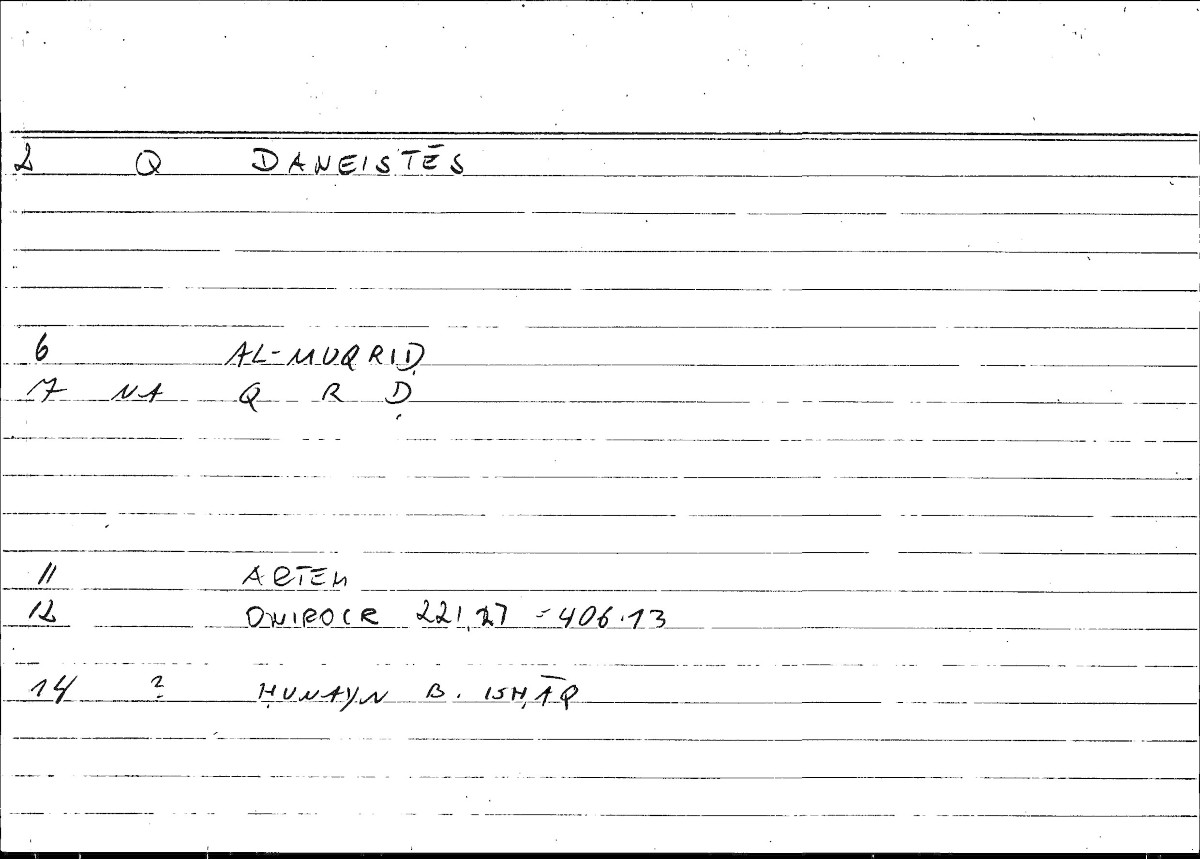 2 Q DANEISTĒS
6 AL-MUQRIḌ
7 NA Q R Ḍ
11 ARTEM
12 ONIROCR 221,27 = 406.13
14 ? ḤUNAYN B. ISḤĀQ